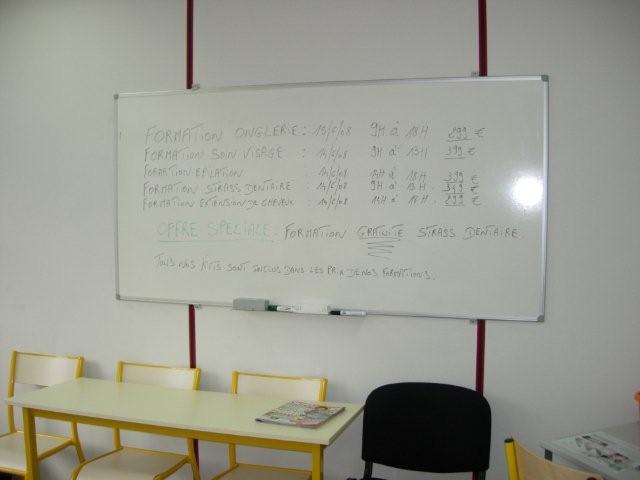 FORMATION ONGLERIE : 13/6/08 9H à 18H 299 €
FORMATION SOIN VISAGE : 14/6/08 9H à 13H 399 €
FORMATION EPILATION : 14/6/08 14H à 18H 399 €
FORMATION STRASS DENTAIRE : 14/6/08 9H à 13H 349 €
FORMATION EXTENSION DE CHEVEUX : 14/6/08 14H à 18H 299 €
OFFRE SPECIALE : FORMATION GRATUITE STRASS DENTAIRE.
TOUS NOS KITS SONT INCLUS DANS LES PRIX DE NOS FORMATIONS.